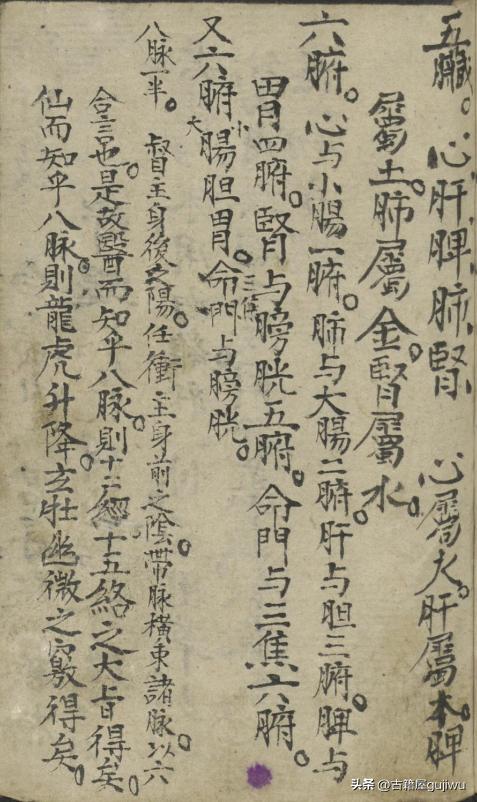 五臟。心肝脾肺腎　心屬火。肝屬木。脾
屬土。肺屬金。腎屬水。
六腑。心与小腸一腑。肺与大腸二腑。肝与胆三腑。脾与
胃四腑。腎与膀胱五腑。命門与三焦六腑。
又六腑大小腸胆胃。命門三焦与膀胱。
八脉一半。督主身後之陽。任衝主身前之陰。帶脉橫束諸脉。以六
合言也。是故醫而知乎八脉。則十二經十五絡之大旨得矣。
仙而知乎八脉。則龍虎升降。玄牡幽微之竅得矣。
头条 @古籍屋gujiwu